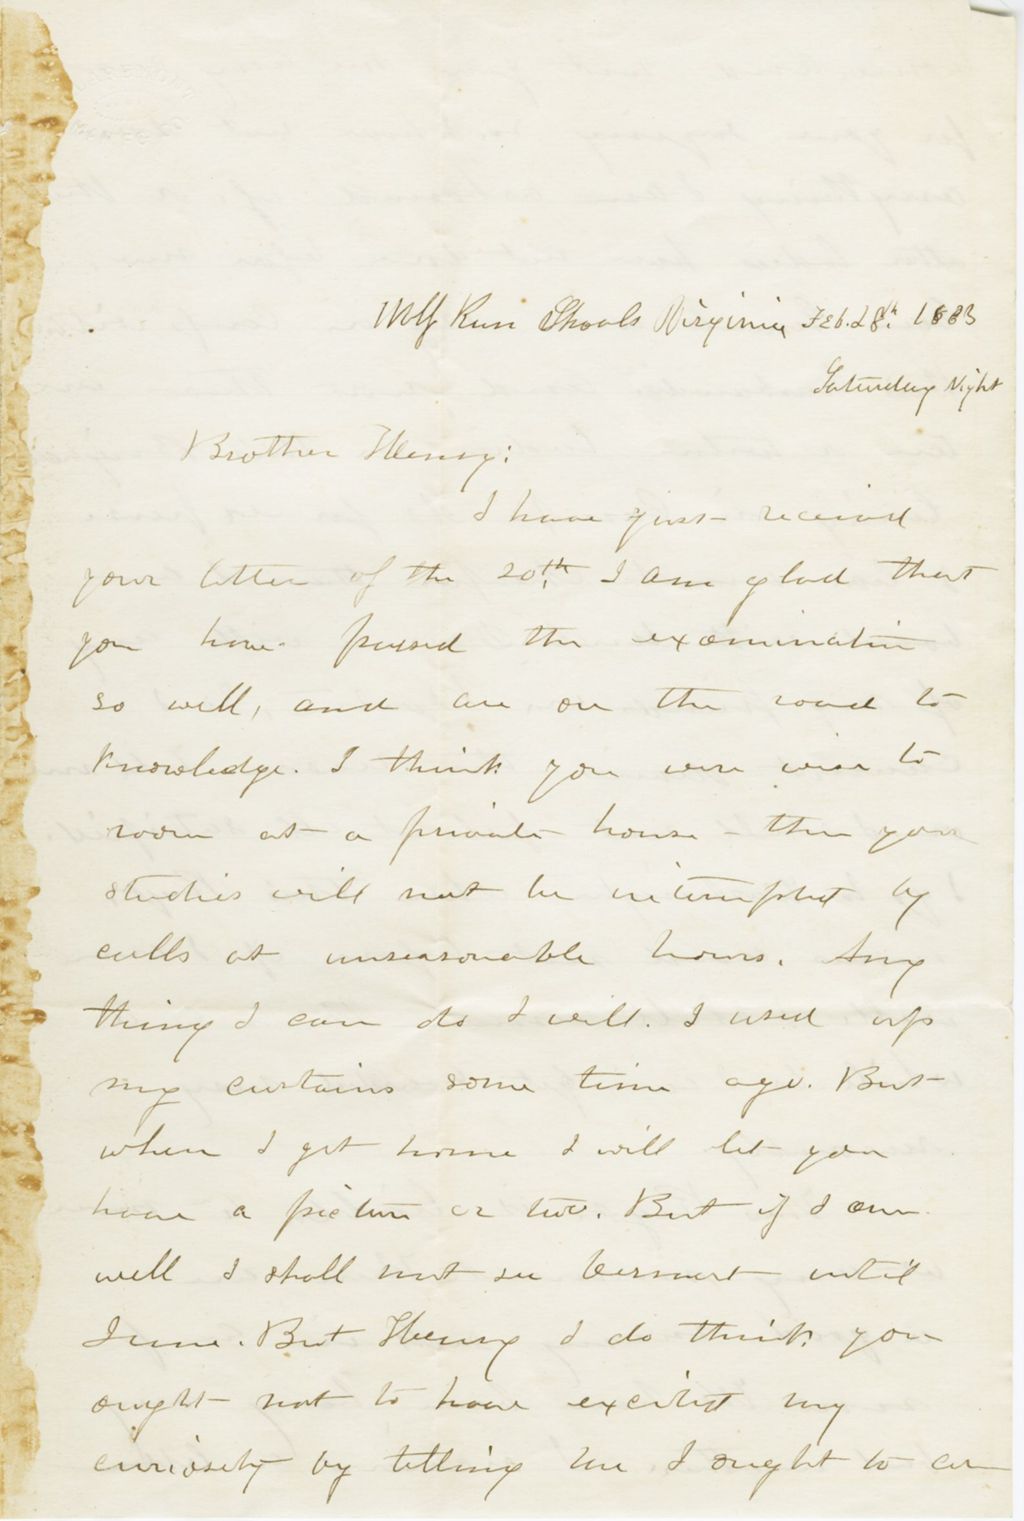 Wolf Run Shoals Virginia Feb. 28th. 1863
Saturday Night
Brother Henry:
I have just received
your letter of the 20th. I am glad that
you have passed the examination
so well, and are on the road to
knowledge. I think you were wise to
room at a private house - then your
studies will not be interrupted by
calls at unseasonable hours. Any
thing I can do I will. I used up
my curtains some time ago. But
when I get home I will let you
have a picture or two. But if I am
well I shall not see until
June. But Henry I do think you
ought not to have excited my
curiosity by telling me I ought to